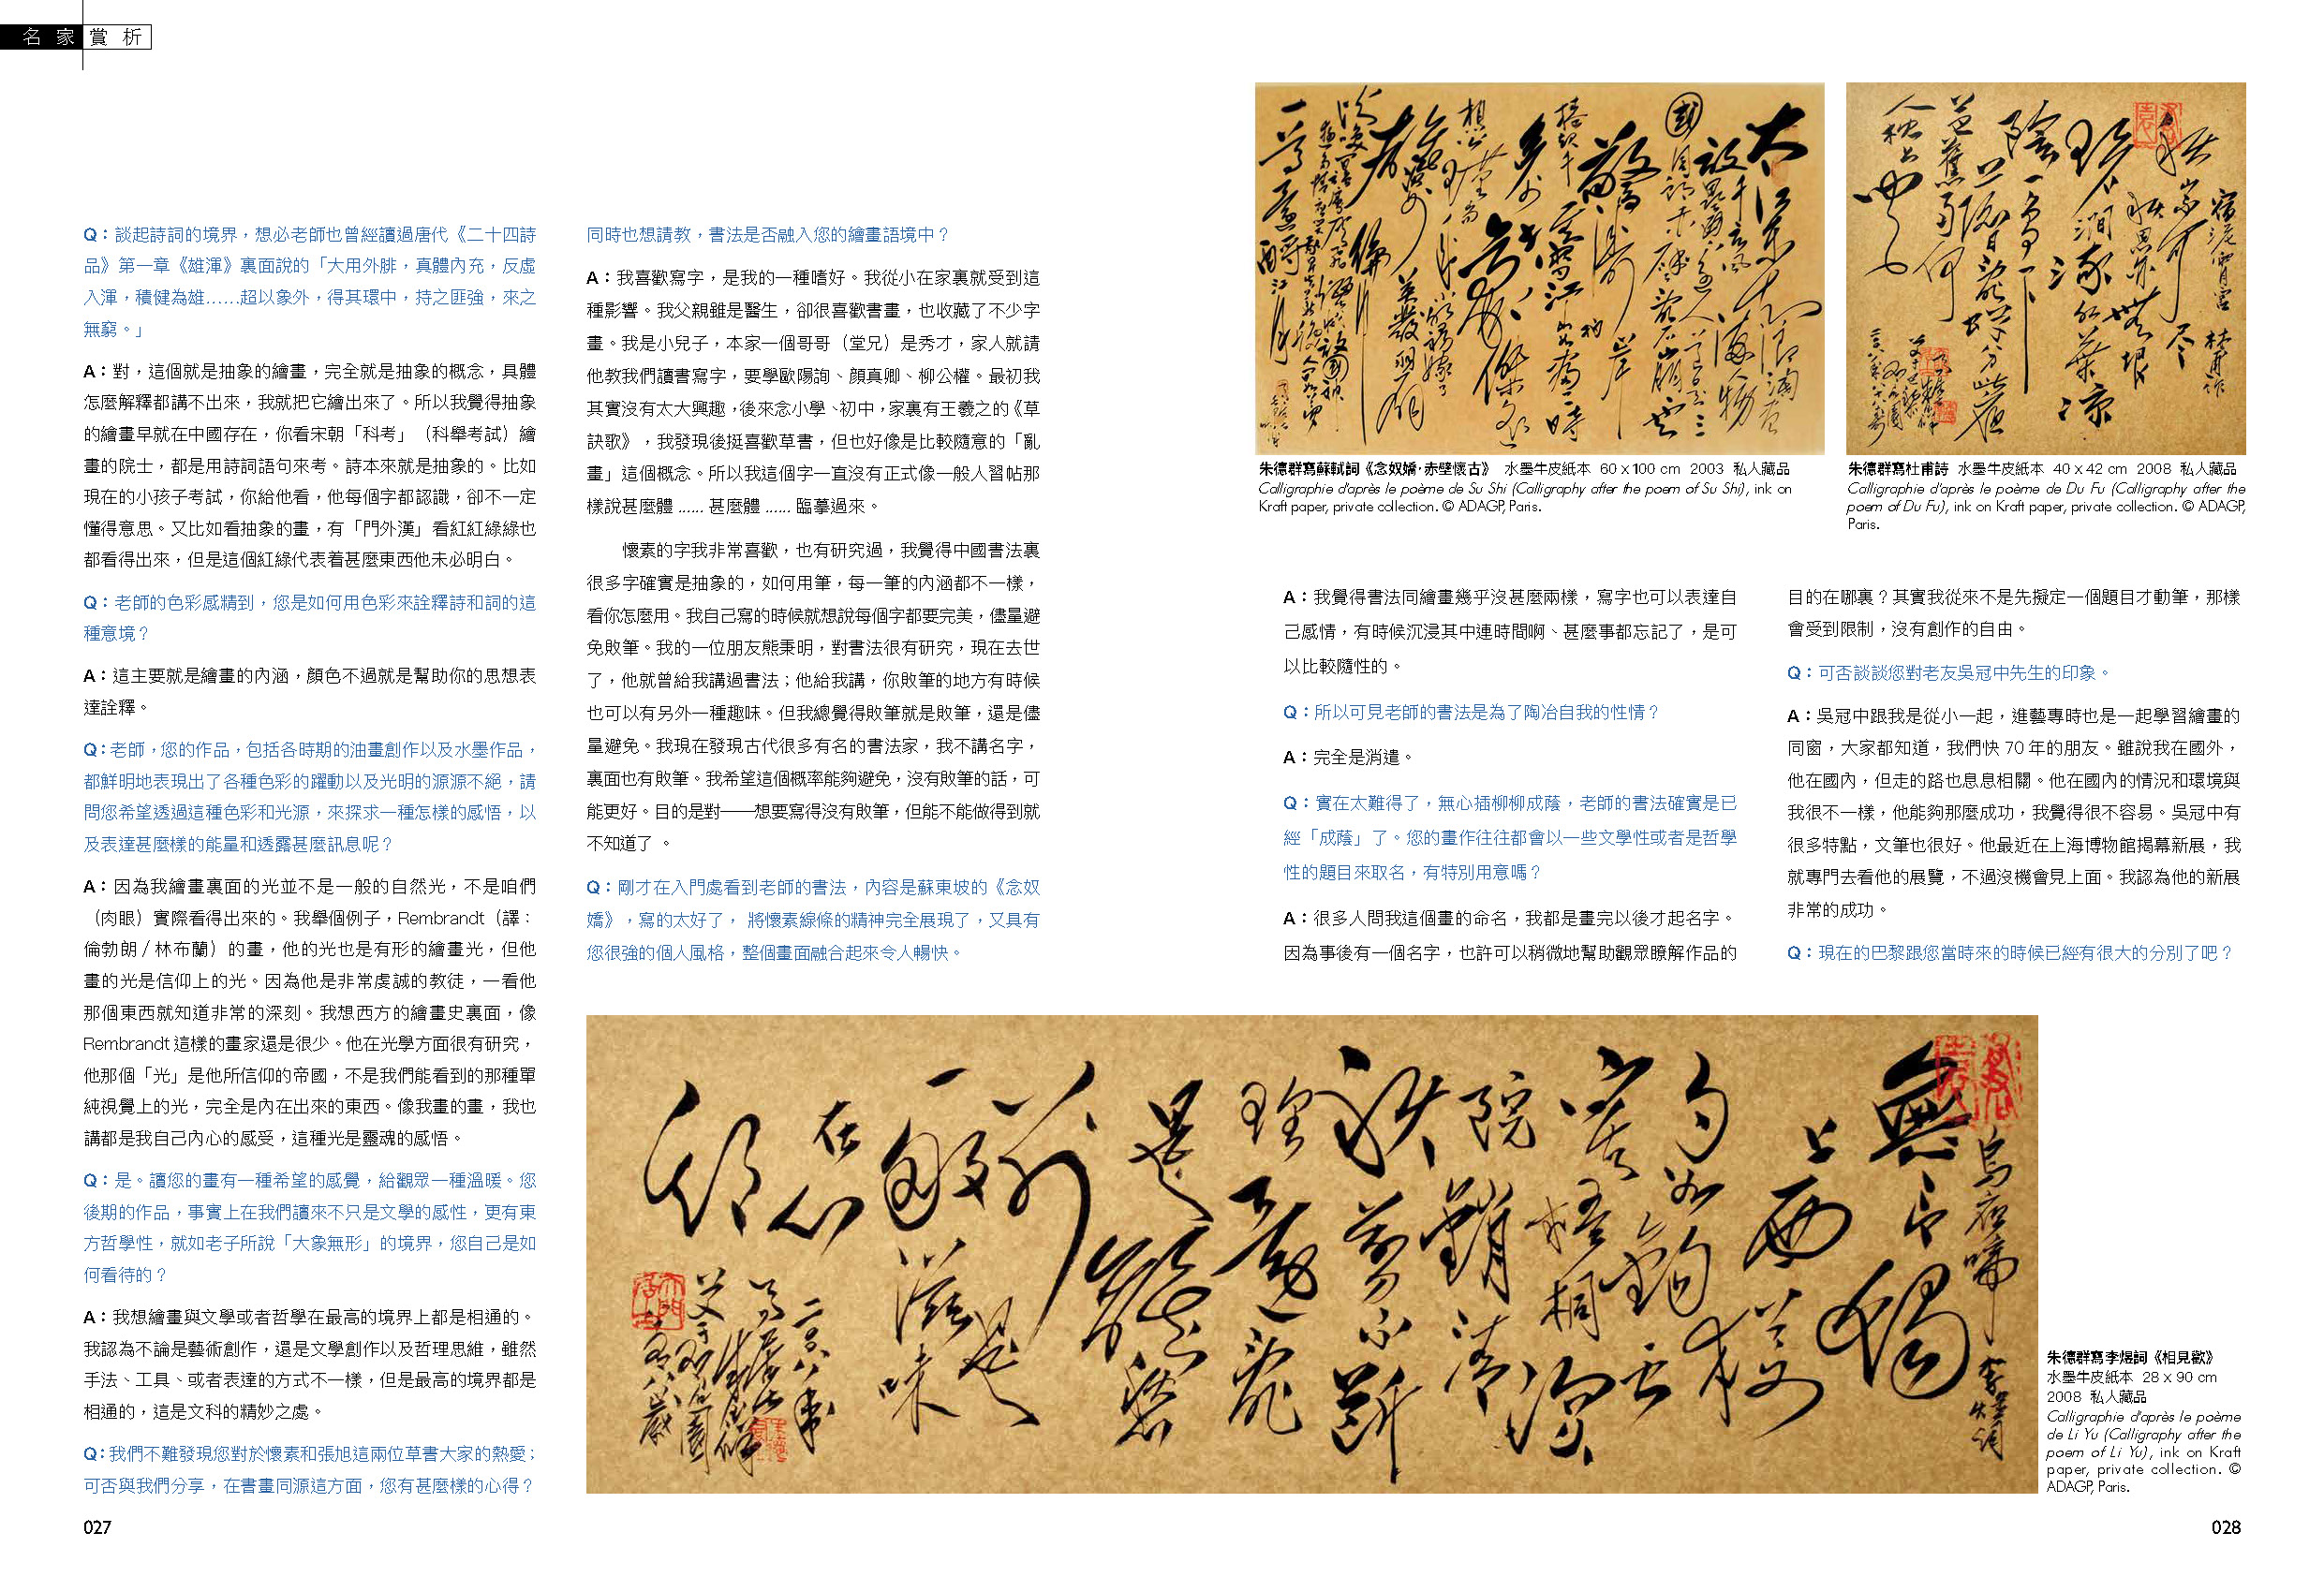 名家賞析
Q：談起詩詞的境界，想必老師也曾經讀過唐代《二十四詩
品》第一章《雄渾》裏面說的「大用外腓，真體內充，反虛
入渾，積健為雄......超以象外，得其環中，持之匪強，來之
無窮。」
A：對，這個就是抽象的繪畫，完全就是抽象的概念，具體
怎麼解釋都講不出來，我就把它繪出來了。所以我覺得抽象
的繪畫早就在中國存在，你看宋朝「科考」（科舉考試）繪
畫的院士，都是用詩詞語句來考。詩本來就是抽象的。比如
現在的小孩子考試，你給他看，他每個字都認識，卻不一定
懂得意思。又比如看抽象的畫，有「門外漢」看紅紅綠綠也
都看得出來，但是這個紅綠代表着甚麼東西他未必明白。
Q：老師的色彩感精到，您是如何用色彩來詮釋詩和詞的這
種意境？
A：這主要就是繪畫的內涵，顏色不過就是幫助你的思想表
達詮釋。
Q：老師，您的作品，包括各時期的油畫創作以及水墨作品，
都鮮明地表現出了各種色彩的躍動以及光明的源源不絕，請
問您希望透過這種色彩和光源，來探求一種怎樣的感悟，以
及表達甚麼樣的能量和透露甚麼訊息呢？
A：因為我繪畫裏面的光並不是一般的自然光，不是咱們
（肉眼）實際看得出來的。我舉個例子，Rembrandt（譯：
倫勃朗 / 林布蘭）的畫，他的光也是有形的繪畫光，但他
畫的光是信仰上的光。因為他是非常虔誠的教徒，一看他
那個東西就知道非常的深刻。我想西方的繪畫史裏面，像
Rembrandt 這樣的畫家還是很少。他在光學方面很有研究，
他那個「光」是他所信仰的帝國，不是我們能看到的那種單
純視覺上的光，完全是內在出來的東西。像我畫的畫，我也
講都是我自己內心的感受，這種光是靈魂的感悟。
Q：是。讀您的畫有一種希望的感覺，給觀眾一種溫暖。您
後期的作品，事實上在我們讀來不只是文學的感性，更有東
方哲學性，就如老子所說「大象無形」的境界，您自己是如
何看待的？
A：我想繪畫與文學或者哲學在最高的境界上都是相通的。
我認為不論是藝術創作，還是文學創作以及哲理思維，雖然
手法、工具、或者表達的方式不一樣，但是最高的境界都是
相通的，這是文科的精妙之處。
Q：我們不難發現您對於懷素和張旭這兩位草書大家的熱愛；
可否與我們分享，在書畫同源這方面，您有甚麼樣的心得？
027
同時也想請教，書法是否融入您的繪畫語境中？
A：我喜歡寫字，是我的一種嗜好。我從小在家裏就受到這
種影響。我父親雖是醫生，卻很喜歡書畫，也收藏了不少字
畫。我是小兒子，本家一個哥哥（堂兄）是秀才，家人就請
他教我們讀書寫字，要學歐陽詢、顏真卿、柳公權。最初我
其實沒有太大興趣，後來念小學、初中，家裏有王羲之的《草
訣歌》，我發現後挺喜歡草書，但也好像是比較隨意的「亂
畫」這個概念。所以我這個字一直沒有正式像一般人習帖那
樣說甚麼體 ...... 甚麼體 ...... 臨摹過來。
懷素的字我非常喜歡，也有研究過，我覺得中國書法裏
很多字確實是抽象的，如何用筆，每一筆的內涵都不一樣，
看你怎麼用。我自己寫的時候就想說每個字都要完美，儘量避
免敗筆。我的一位朋友熊秉明，對書法很有研究，現在去世
了，他就曾給我講過書法；他給我講，你敗筆的地方有時候
也可以有另外一種趣味。但我總覺得敗筆就是敗筆，還是儘
量避免。我現在發現古代很多有名的書法家，我不講名字，
裏面也有敗筆。我希望這個概率能夠避免，沒有敗筆的話，可
能更好。目的是對——想要寫得沒有敗筆，但能不能做得到就
不知道了 。
Q：剛才在入門處看到老師的書法，內容是蘇東坡的《念奴
嬌》，寫的太好了， 將懷素線條的精神完全展現了，又具有
您很強的個人風格，整個畫面融合起來令人暢快。
朱德群寫蘇軾詞《念奴嬌·赤壁懷古》 水墨牛皮紙本 60 x 100 cm 2003 私人藏品
Calligraphie d'après le poème de Su Shi (Calligraphy after the poem of Su Shi), ink on
Kraft paper, private collection. © ADAGP, Paris.
朱德群寫杜甫詩 水墨牛皮紙本 40 x 42 cm 2008 私人藏品
Calligraphie d'après le poème de Du Fu (Calligraphy after the
poem of Du Fu), ink on Kraft paper, private collection. © ADAGP,
Paris.
A：我覺得書法同繪畫幾乎沒甚麼兩樣，寫字也可以表達自
己感情，有時候沉浸其中連時間啊、甚麼事都忘記了，是可
以比較隨性的。
Q：所以可見老師的書法是為了陶冶自我的性情？
A：完全是消遣。
Q：實在太難得了，無心插柳柳成蔭，老師的書法確實是已
經「成蔭」了。您的畫作往往都會以一些文學性或者是哲學
性的題目來取名，有特別用意嗎？
A：很多人問我這個畫的命名，我都是畫完以後才起名字。
因為事後有一個名字，也許可以稍微地幫助觀眾瞭解作品的
目的在哪裏？其實我從來不是先擬定一個題目才動筆，那樣
會受到限制，沒有創作的自由。
Q：可否談談您對老友吳冠中先生的印象。
A：吳冠中跟我是從小一起，進藝專時也是一起學習繪畫的
同窗，大家都知道，我們快 70 年的朋友。雖說我在國外，
他在國內，但走的路也息息相關。他在國內的情況和環境與
我很不一樣，他能夠那麼成功，我覺得很不容易。吳冠中有
很多特點，文筆也很好。他最近在上海博物館揭幕新展，我
就專門去看他的展覽，不過沒機會見上面。我認為他的新展
非常的成功。
Q：現在的巴黎跟您當時來的時候已經有很大的分別了吧？
朱德群寫李煜詞《相見歡》
水墨牛皮紙本 28 x 90 cm
2008 私人藏品
Calligraphie d'après le poème
de Li Yu (Calligraphy after the
poem of Li Yu), ink on Kraft
paper, private collection. ©
ADAGP, Paris.
028